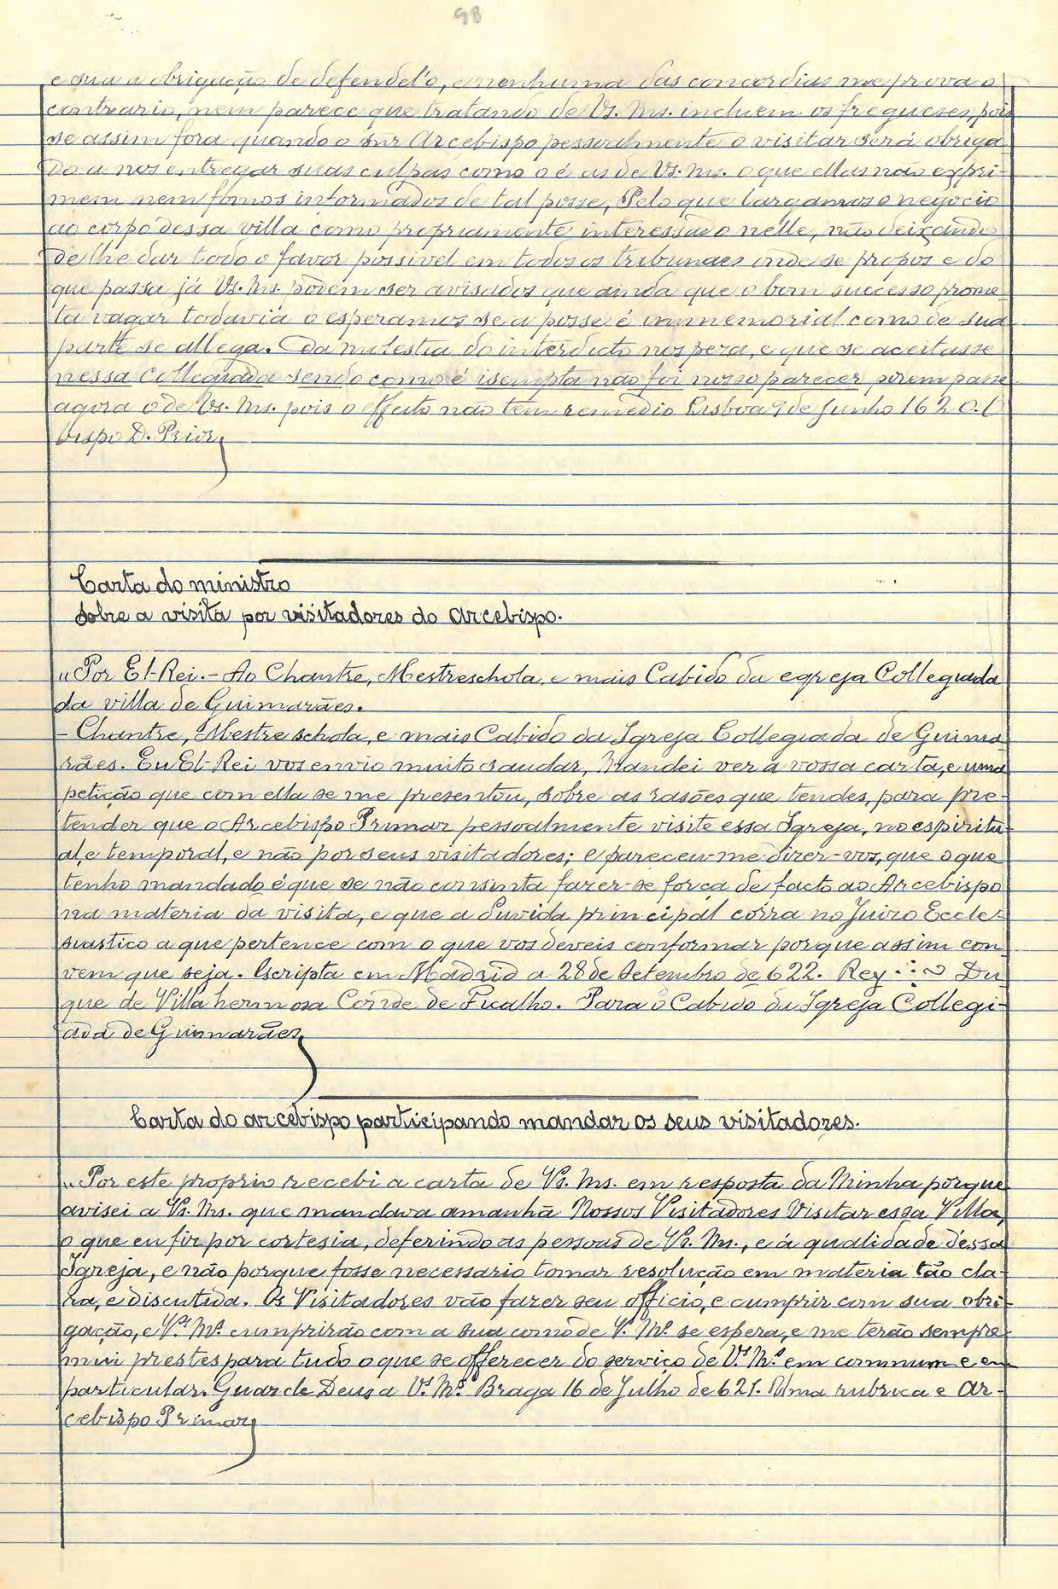 98
e sua a obrigação de defendel'o, e nenhuma das concordias me prova o
contrario, nem parece que tratando de Vs. Ms. incluem os freguezes, pois
se assim fora quando o snr Arcebispo pessoalmente o visitar será obriga
do a nos entregar suas culpas como o é as de Vs. Ms. o que ellas não expri-
mem nem fomos informados de tal posse, Pelo que largamos o negocio
ao corpo dessa villa como propriamente interessado nelle, não deixando
de lhe dar todo o favor possivel em todos os tribunaes onde se propos e do
que passa já Vs. Ms. podem ser avisados que ainda que o bom successo prome-
ta vagar todavia o esperamos se a posse é immemorial como de sua
parte se allega. Da molestia do interdicto nos peza, e que se aceitasse
nessa Collegiada sendo como é isempta não foi nosso parecer, porem passe
agora o de Vs. Ms. pois o effeito não tem remedio Lisboa 9 de Junho 1620.
bispo D. Prior
Carta do ministro
Sobre a visita por visitadores do arcebispo.
"Por El-Rei. – Ao Chantre, Mestreschola, e mais Cabido da egreja Collegiada
da villa de Guimarães.
– Chantre, Mestre schola, e mais Cabido da Igreja Collegiada de Guima
rães. Eu El-Rei vos envio muito saudar, Mandei ver a vossa carta, e uma
petição que com ella se me presentou, sobre as rasões que tendes, para pre-
tender que o Arcebispo Primaz pessoalmente visite essa Igreja, no espiritu-
al, e temporal, e não por seus visitadores; e pareceu-me dizer-vos, que o que
tenho mandado é que se não consinta fazer-se força de facto ao Arcebispo
na materia da visita, e que a duvida principal côrra no Juizo Eccle-
siastico a que pertence com o que vos deveis conformar porque assim con
vem que seja. Escripta em Madrid a 28 de Setembro de 622. Rey Du
que de Villa hermosa Conde de Ficalho. Para o Cabido da Igreja Collegi-
ada de Guimarães
Carta do arcebispo participando mandar os seus visitadores.
"Por este proprio recebi a carta de Vs. Ms. em resposta da Minha porque
avisei a Vs. Ms. que mandava amanhã Nossos Visitadores Visitar essa Villa,
o que eu fiz por cortesia, deferindo as pessoas de Vs. Ms., e á qualidade déssa
Igreja, e não porque fosse necessario tomar resolução em materia tão cla-
ra, e discutida. Os Visitadores vão fazer seu officio, e cumprir com sua obri-
gação, e Vs. Ms. cumprirão com a sua como de Vs. Ms. se espera, e me terão sempre
mui prestes para tudo o que se offerecer do serviço de Vs. Ms. em commum e em
particular. Guarde Deus a Vs. Ms. Braga 16 de Julho de 621. Uma rubrica e Ar-
cebispo Primaz